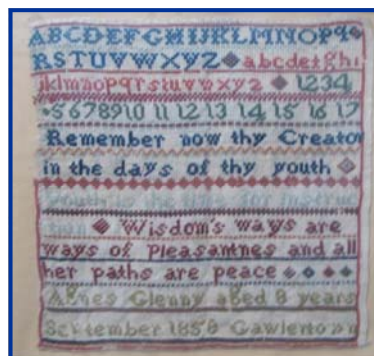 ABCDEFGHIJKLMNOPQ
RSTUVWXYZ abcdefghi
jklmnopqrstuvwxyz 1234
5 6 7 8 9 10 11 12 13 14 15 16 17
Remember now thy Creator
in the days of thy youth
Youth is the time for instruc
tion Wisdom's ways are
ways of Pleasantnes and all
her paths are peace
Agnes Glenny aged 8 years
September 1858 Gawlertown